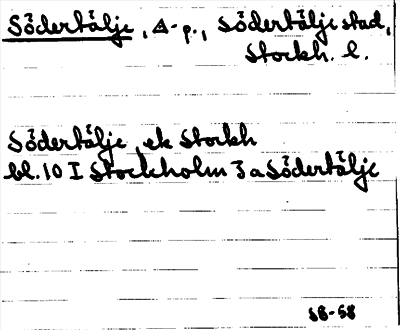 Södertälje, Δ-p., Södertälje stad,
Stockh. l.
Södertälje, ek Stockh
bl. 10 I Stockholm 3 a Södertälje
SB-58